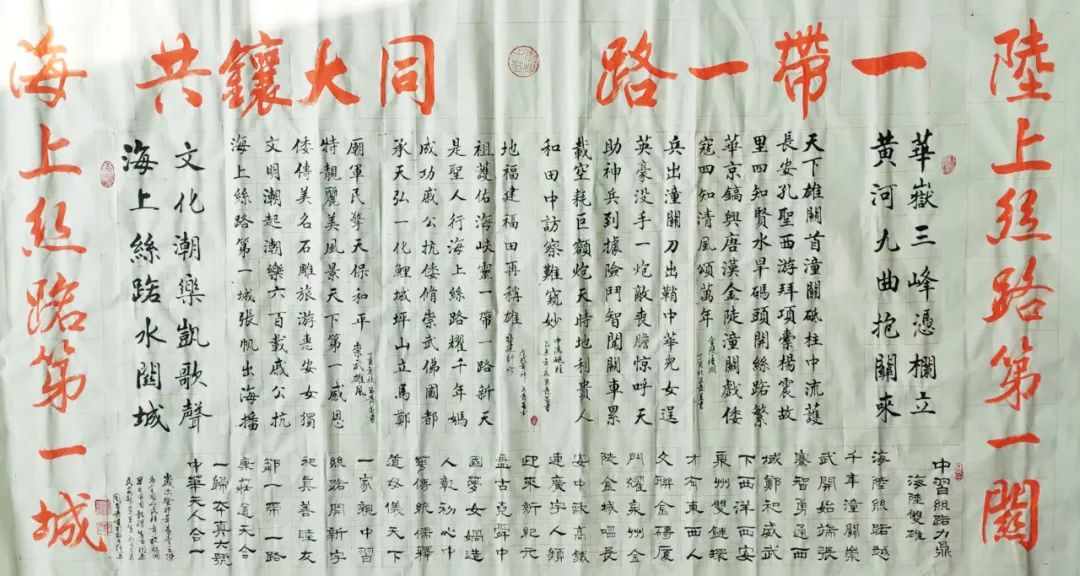 一帶一路
同大鑲共
陸上丝路第一關
海上丝路第一城
華嶽三峰憑欄立
黄河九曲抱關來
天下雄關首潼關砥柱中流護
長安孔聖西游拜項橐楊震故
里四知賢水旱碼頭關絲路繁
華京鎬興唐漢金陡潼關戲倭
寇四知清風頌萬年
兵出潼關刀出鞘中華兒女逞
英豪没手一炮敵喪膽惊呼天
助神兵到據險鬥智閿關車累
載空耗巨額炮天時地利貴人
和田中訪察難窺妙
地福建福田再稱雄
祖護佑海峽靈一帶一路新天
是聖人行海上絲路耀千年媽
成功戚公抗倭脩崇武佛國都
承天弘一化鯉城坪山立馬鄭
廟軍民擎天保和平
特靚麗美風景天下第一感恩
倭傳美名石雕旅游惠安女獨
文明潮起潮樂六百載戚公抗
海上絲路第一城張帆出海播
文化潮樂凱歌聲
海上絲路水閏城
中習絲路力鼎
海陸雙雄
海陸丝路越
千年潼關樂
武開始端張
騫智勇通西
域鄭和威武
下西洋西安
泉州雙鏈環
才有東西人
文聯金磚厦
門耀泉州金
陸金城唱長
安中歐高鐵
連廣宇人類
迎來新紀元
盤古克舜中
國夢女媧造
人彰初心中
華傳統儒釋
道女儀天下
一家親中習
絲路開新宇
和真善睦友
鄰一帶一路
康莊道天合
一歸本真大號
中華天人合一